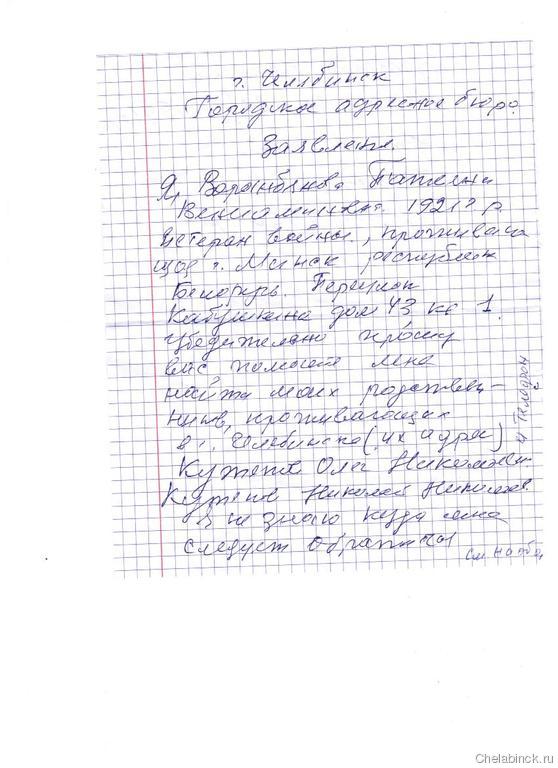 г. Челябинск
Городское адресное бюро.
Заявление.
Я,
Вениаминовна 1921 г р.
ветеран войны, проживаю
щая г. Минск республик
Беларусь. Переулок
Кабушкина дом 43 кв 1.
убедительно прошу
вас помогите мне
найти моих родствен-
ников, проживающих
в г. Челябинске (их адрес)
и Телефон
Олег Николаевич
Николай
Я не знаю куда мне
следует обратиться
См на об
Chelabinck.ru